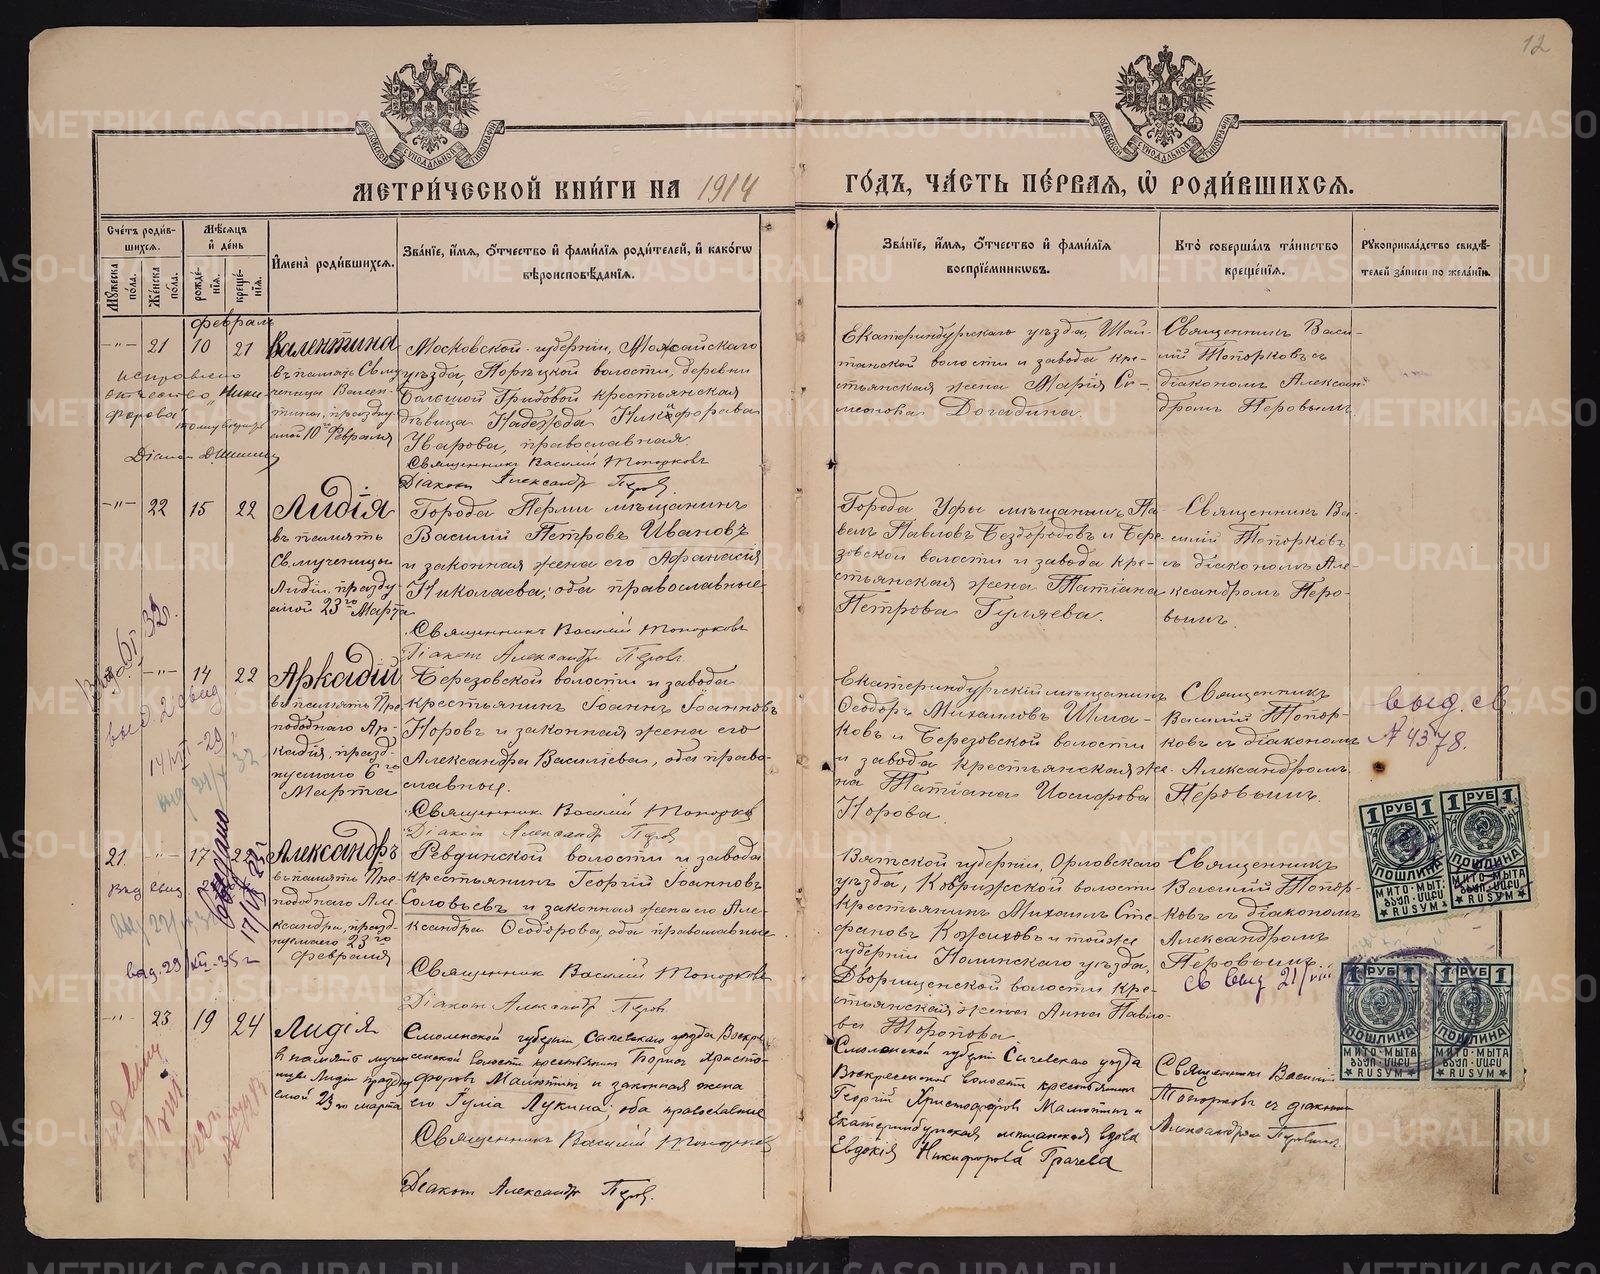 12
МОСКОВСКОЙ СѴНОДАЛЬНОЙ ТИПОГРАФІИ
МОСКОВСКОЙ СѴНОДАЛЬНОЙ ТИПОГРАФІИ
МЕТРИ́ЧЕСКОЙ КНИ́ГИ НА 1914
ГО́ДЪ, ЧА́СТЬ ПЕ́РВАЯ, Ѡ РОДИ́ВШИХСЯ.
Сче́тъ роди́в-
шихся.
Мꙋ́жеска по́ла.
Же́нска по́ла.
Мѣ́сяцъ
и́ де́нь
рожде́-
нїя.
креще́-
нїя.
И҆мена̀ роди́вшихся.
Зва́нїе, и́мя, ѻ҆́тчество и҆ фами́лїя роди́телей, и҆ како́гѡ
вѣроисповѣ́данїя.
Зва́нїе, и́мя, ѻ҆́тчество и҆ фами́лїя
воспрїе́мникѡвъ.
Кто̀ соверша́лъ та́инство
креще́нїя.
Рꙋкоприкла́дство свидѣ́-
телей за́писи по жела́нїю.
февраль
-"- 21 10 21
Валентина
въ память Св. му
ченицы Вален-
тины, праздну
емой 10го Февраля
исправлено
отчество „Ники-
форова"
Діаконъ
Московской губерніи, Можайскаго
уѣзда, Порѣцкой волости, деревни
Большой Грибовой крестьянская
дѣвица Надежда Никифорова
Уварова, православная.
Священникъ Василій Топорковъ
Діаконъ Александръ Перовъ
Екатеринбургскаго уѣзда, Шай-
танской волости и завода кре-
стьянская жена Марія Си-
меонова Догадина.
Священникъ Васи-
лій Топорковъ съ
діакономъ Алексан-
дромъ Перовымъ.
-"- 22 15 22
Лидія
въ память
Св. мученицы
Лидіи, празду
емой 23го Марта
Города Перми мѣщанинъ
Василій Петровъ Ивановъ
и законная жена его Афанасія
Николаева, оба православные
Священникъ Василій Топорковъ
Діаконъ Александръ Перовъ
Города Уфы мѣщанинъ Па-
велъ Павловъ Бездородовъ и Бере-
зовской волости и завода кре-
стьянская жена Татіана
Петрова Гуляева.
Священникъ Ва-
силій Топорковъ
съ діакономъ Але-
ксандромъ Перо-
вымъ.
-"- 14 22
Аркадій
въ память Пре-
подобнаго Ар-
кадія, празд-
нуемаго 6го
Марта
Березовской волости и завода
крестьянинъ Іоаннъ Іоанновъ
Норовъ и законная жена его
Александра Васильева, оба право-
славные.
Священникъ Василій Топорковъ
Діаконъ Александръ Перовъ
Екатеринбургскій мѣщанинъ
Ѳеодоръ Михаиловъ Шма-
ковъ и Березовской волости
и завода крестьянская же-
на Татіана Іосифова
Норова.
Священникъ
Василій Топор-
ковъ съ діакономъ
Александромъ
Перовымъ.
выд. св.
№ 4378.
21. -"- 17
Александръ
въ память Пре-
подобнаго Але-
ксандра, празд-
нуемаго 23го
Февраля
Ревдинской волости и завода
крестьянинъ Георгій Іоанновъ
Соловьевъ и законная жена его Але-
ксандра Ѳеодорова, оба православные
Священникъ Василій Топорковъ
Діаконъ Александръ Перовъ
Вятской губерніи, Орловскаго
уѣзда, Кобрижской волости
крестьянинъ Михаилъ Сте-
фановъ Кожиховъ и тойже
губерніи Нолинскаго уѣзда,
Дворищенской волости кре-
стьянская жена Анна Павло-
ва Торопова
Священникъ
Василій Топор-
ковъ съ діакономъ
Александромъ
Перовымъ.
св выд 21/VIII
1 РУБ 1
ПОШЛИНА
RUSUM
1 РУБ 1
ПОШЛИНА
RUSUM
1 РУБ 1
ПОШЛИНА
RUSUM
1 РУБ 1
ПОШЛИНА
RUSUM
-"- 23 19 24
Лидія
въ память муче-
ницы Лидіи праздну
емой 23го марта
Смоленской губерніи Сычевскаго уѣзда Воскре
сенской волости крестьянинъ Борисъ Христо-
форовъ Малюткинъ и законная жена
его Гулія Лукина, оба православные
Священникъ Василій Топорковъ
Діаконъ Александръ Перовъ.
Смоленской губерніи Сычевскаго уѣзда
Воскресенской волости крестьянинъ
Георгій Христофоровъ Малюткинъ и
Екатеринбургская мѣщанская вдова
Евдокія Никифорова Грачева
Священникъ Василій
Топорковъ съ діакономъ
Александромъ Перовымъ.
METRIKI.GASO-URAL.RU